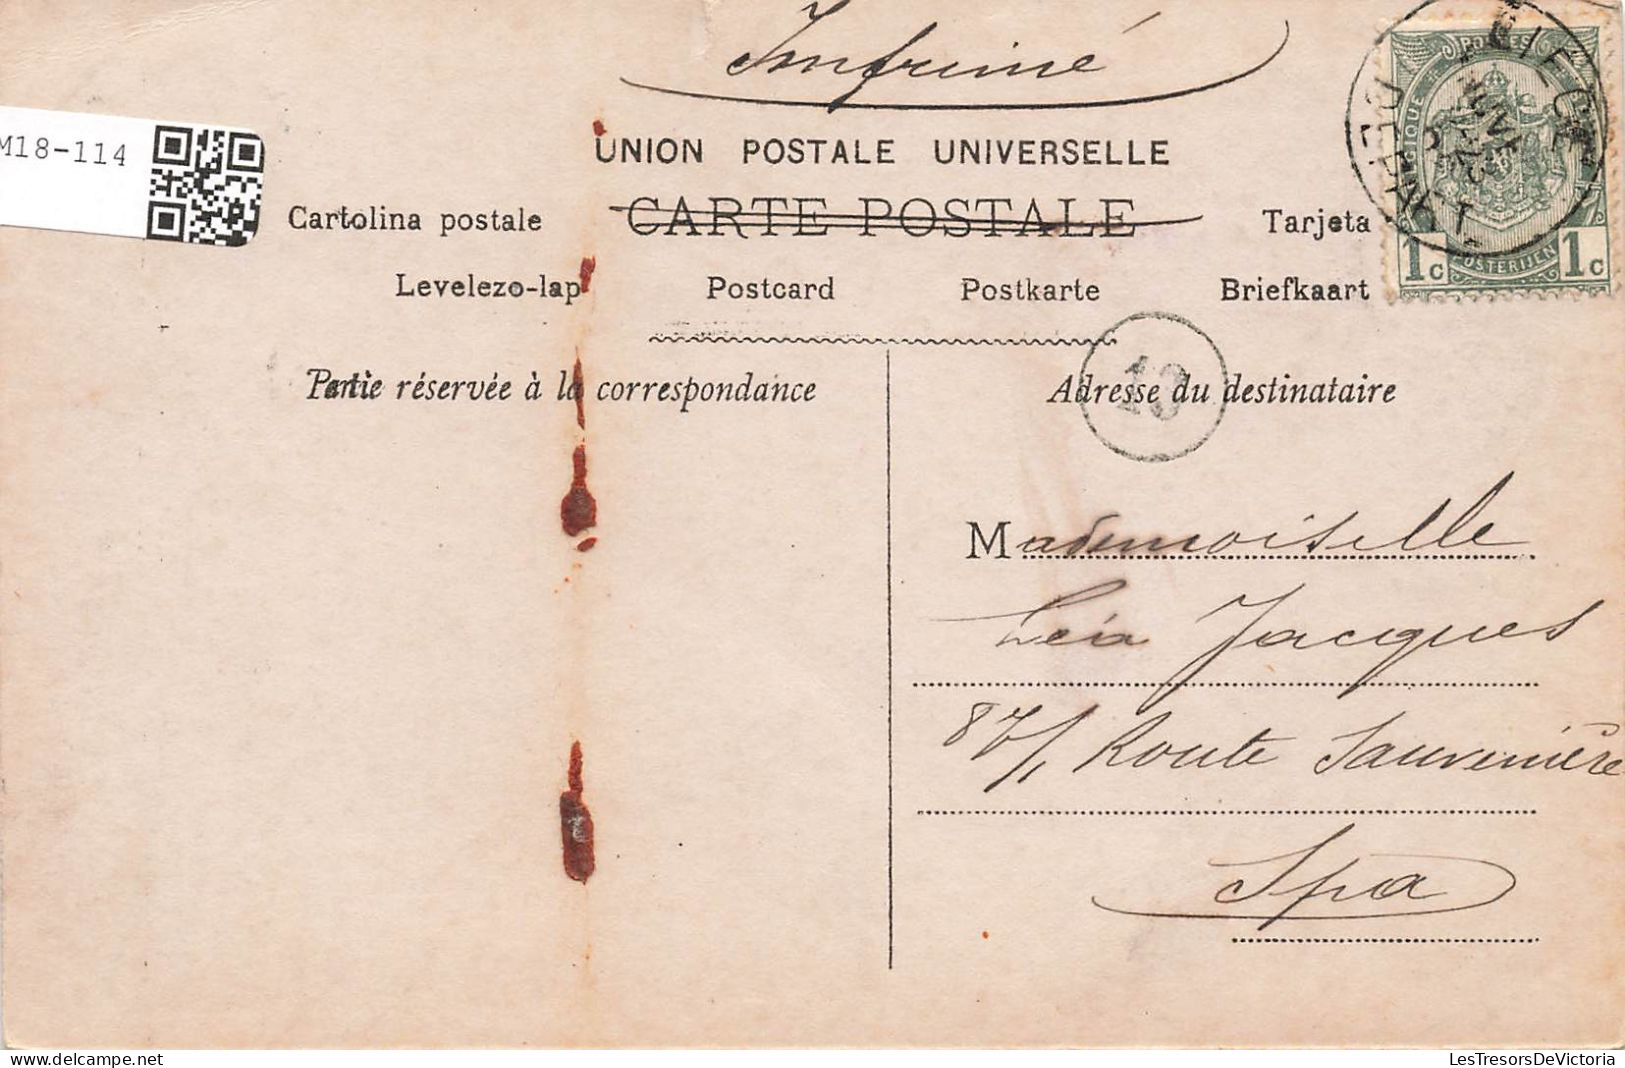 Imprimé
UNION POSTALE UNIVERSELLE
M18-114
Cartolina postale CARTE POSTALE Tarjeta
Levelezo-lap Postcard Postkarte Briefkaart
POSTES
1c POSTERIJEN 1c
LIEGE
DEPART
13
Partie réservée à la correspondance
Adresse du destinataire
Mademoiselle
Léa Jacques
87/1 Route Sauvenière
Spa
LesTresorsDeVictoria